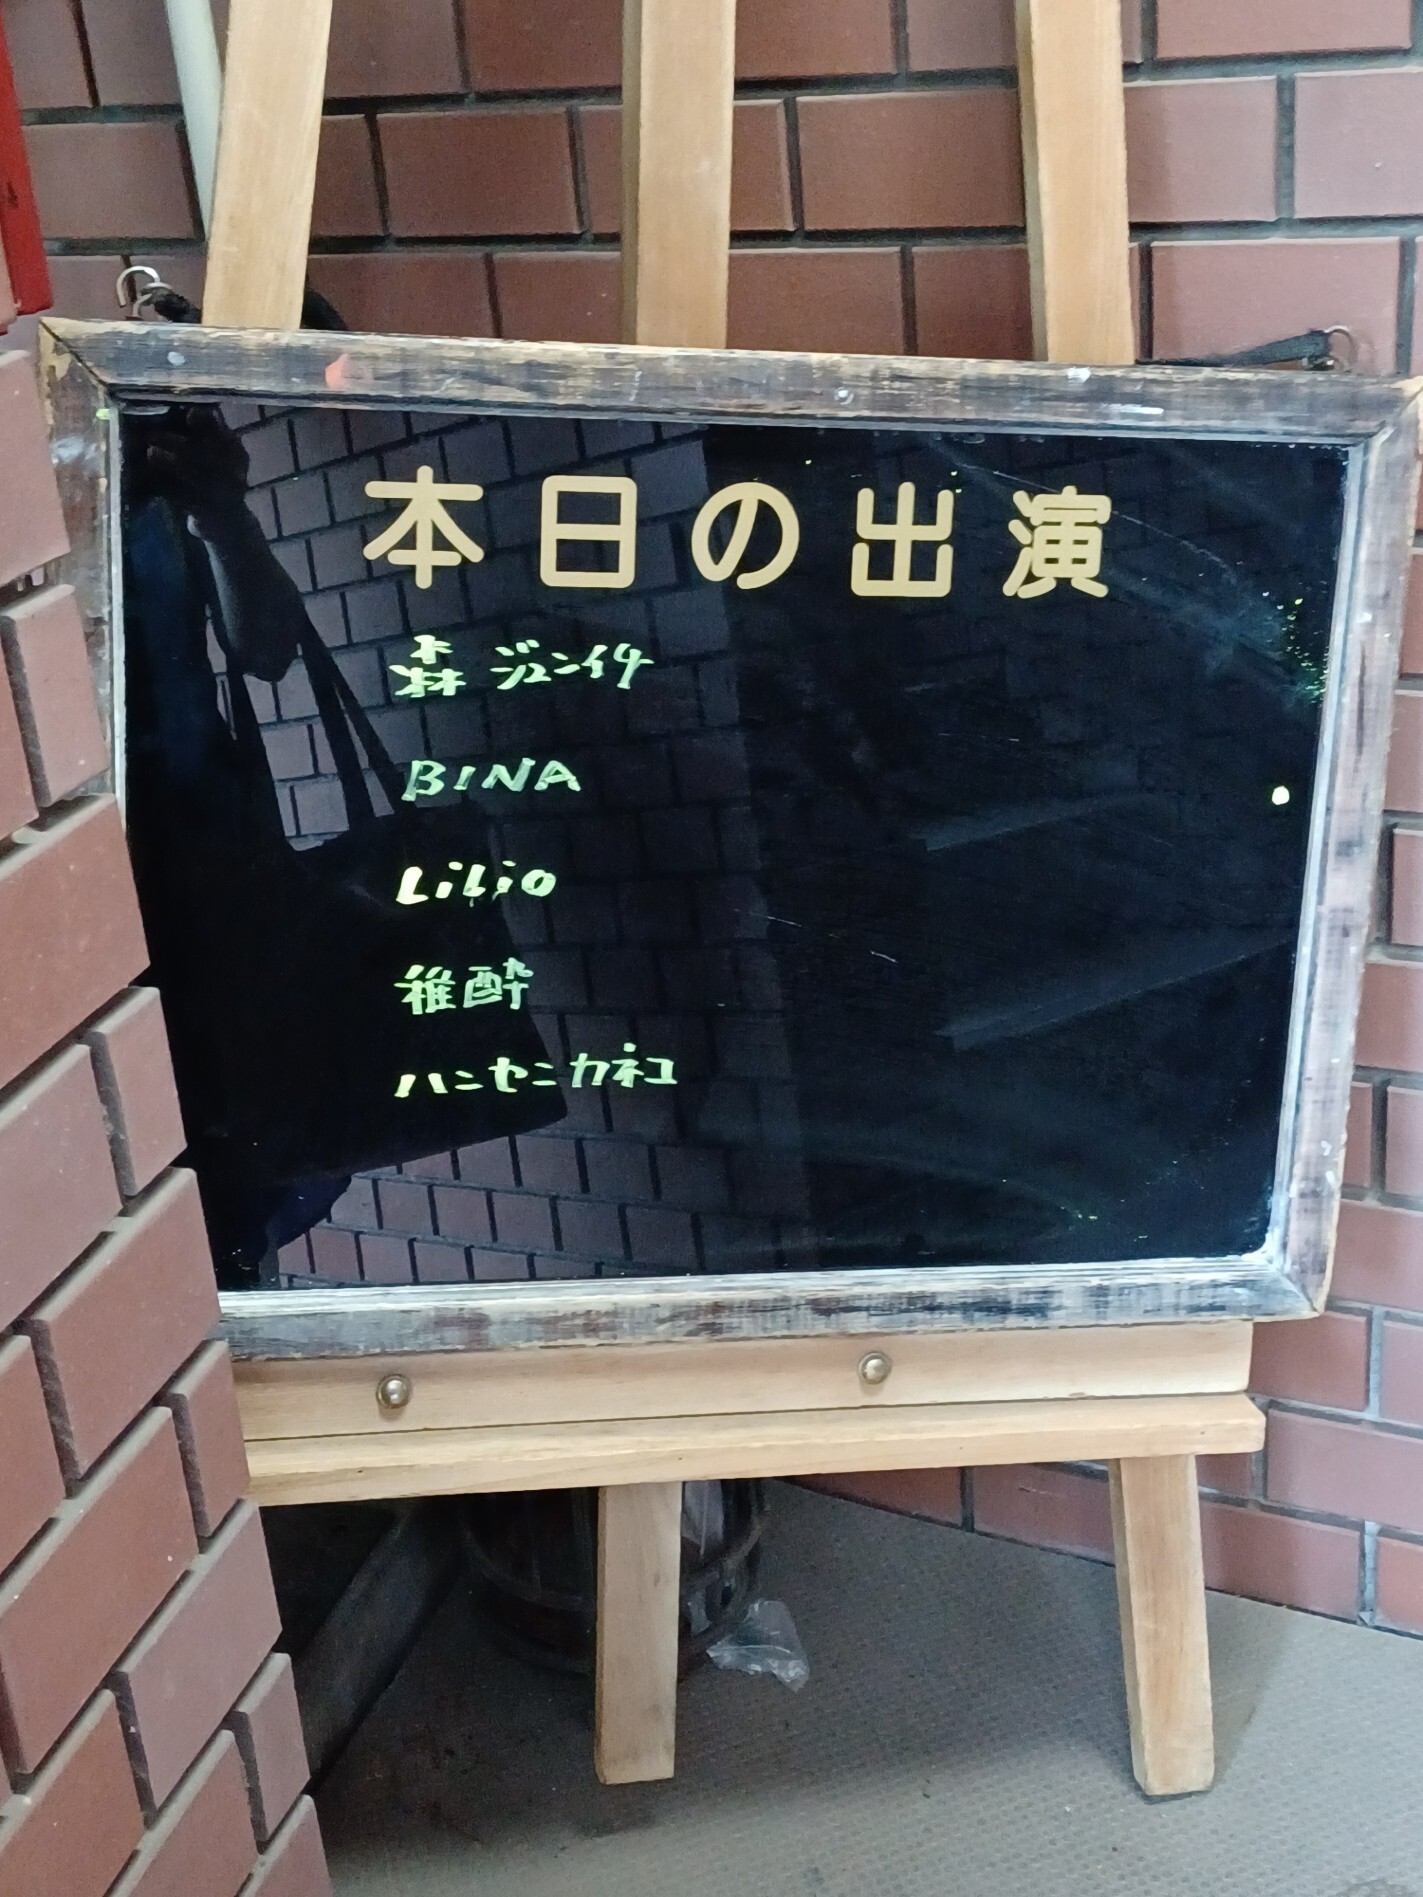 本日の出演
森 ジュンイチ
BINA
Lilio
稚酔
ハンセンカネコ